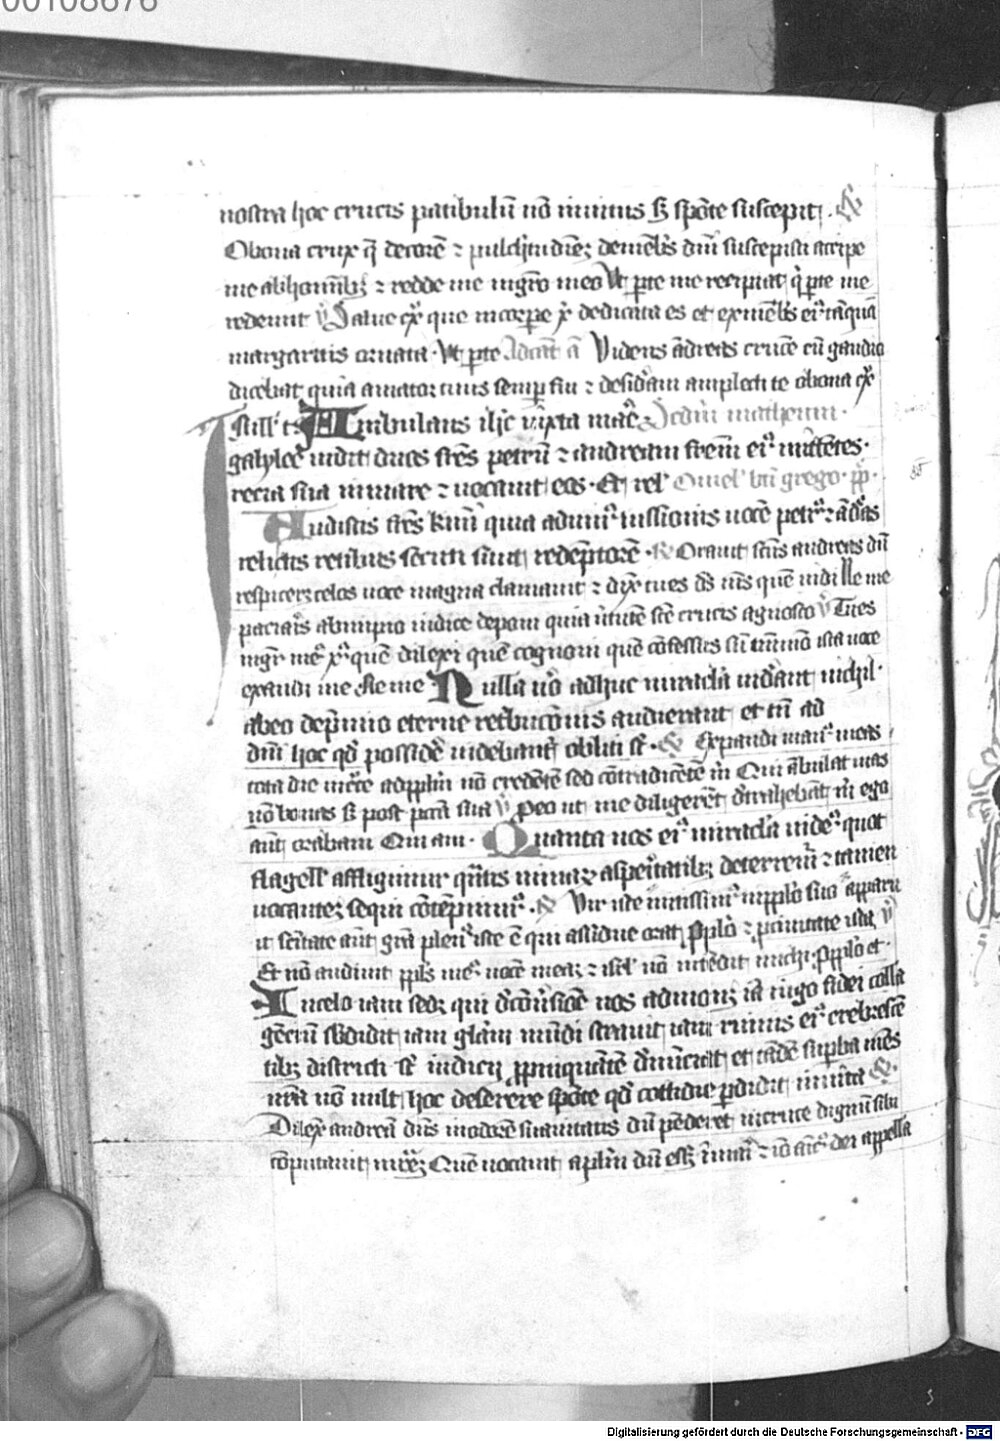 00108676
nostra hoc crucis patibulū nō inuitus sꝫ spōte suscepit
O bona crux q̄ decorē ⁊ pulchritudīeꝫ de mēbris dn̄i suscepisti accipe
me ab hominibꝫ ⁊ redde me mgr̄o meo Vt per te me recipiat qͥ per te me
redemit Salue crux que in corpe xp̄i dedicata es et ex mēbris eiꝰ tāquā
margaritis ornata Vt per te Videns andreas crucē cū gaudio
dicebat quia amator tuus semp fui ⁊ desideraui amplecti te o bona crux
Ambulans ihc iuxta mare Scdm matheum
galylee uidit duos fr̄es petrū ⁊ andream frem eiꝰ mittētes
recia sua in mare ⁊ uocauit eos Et rel Omel bti grego pp
Audistis fr̄es kmi quia ad uniꝰ iussionis uocē petrꝰ ⁊ andreas
relictis retibus secuti sunt redēptorē Orauit scūs andreas dū
respiceret celos uoce magna clamauit ⁊ dixit tu es ds ms quē uidi Ne me
paciaris ab impio iudice deponi quia uirtutē scē crucis agnosco Tu es
mgr̄ meꝰ xp̄c quē dilexi quē cognoui quē cōfessus sū in ista uoce
exaudi me Ne me Nulla uō adhuc miracula uiderant nichil
ab eo de premio eterne retribucionis audierant et tn̄ ad
dn̄i hoc qd possidē uidebant obliti sūt Expandi manꝰ meas
tota die ad pplm nō credētē sed cōtradicētē m Qui ābulat uias
nō bonas sꝫ post pctā sua Pro ut me diligerēt detrahebāt m ego
aūt orabam Qui am Quanta nos eiꝰ miracla uidemꝰ quot
flagell affligimur quātis minarꝫ asperitatibꝫ deterremur ⁊ tamen
uocantem sequi cōtempnimꝰ Vir iste in pplo suo
scītate aūt grā plenꝰ iste ē qui assidue orat pro pplo ⁊ pro ciuitate ista
Et nō audiuit pplus meꝰ uocē meaꝫ ⁊ isrl nō intēdit michi Pro pplo et
In celo iam sedet qui de cōuersiōe nos admonet iā iugo fidei colla
gēciū subdidit iam glām mūdi strauit iam ruinis eiꝰ crebrescē
tibꝫ districti sui iudicii ppinquātē diē denūciat et tn̄ superba mēs
nr̄a nō uult hoc deserere spōte qd cottidie perdidit inuita
Dilexit andreā dn̄s in odorē suauitatis dū pēderet in cruce dignū sibi
cōputauit Quē uocauit aplm dū esset in mari ⁊ iō amicꝰ dei appella
Digitalisierung gefördert durch die Deutsche Forschungsgemeinschaft - DFG